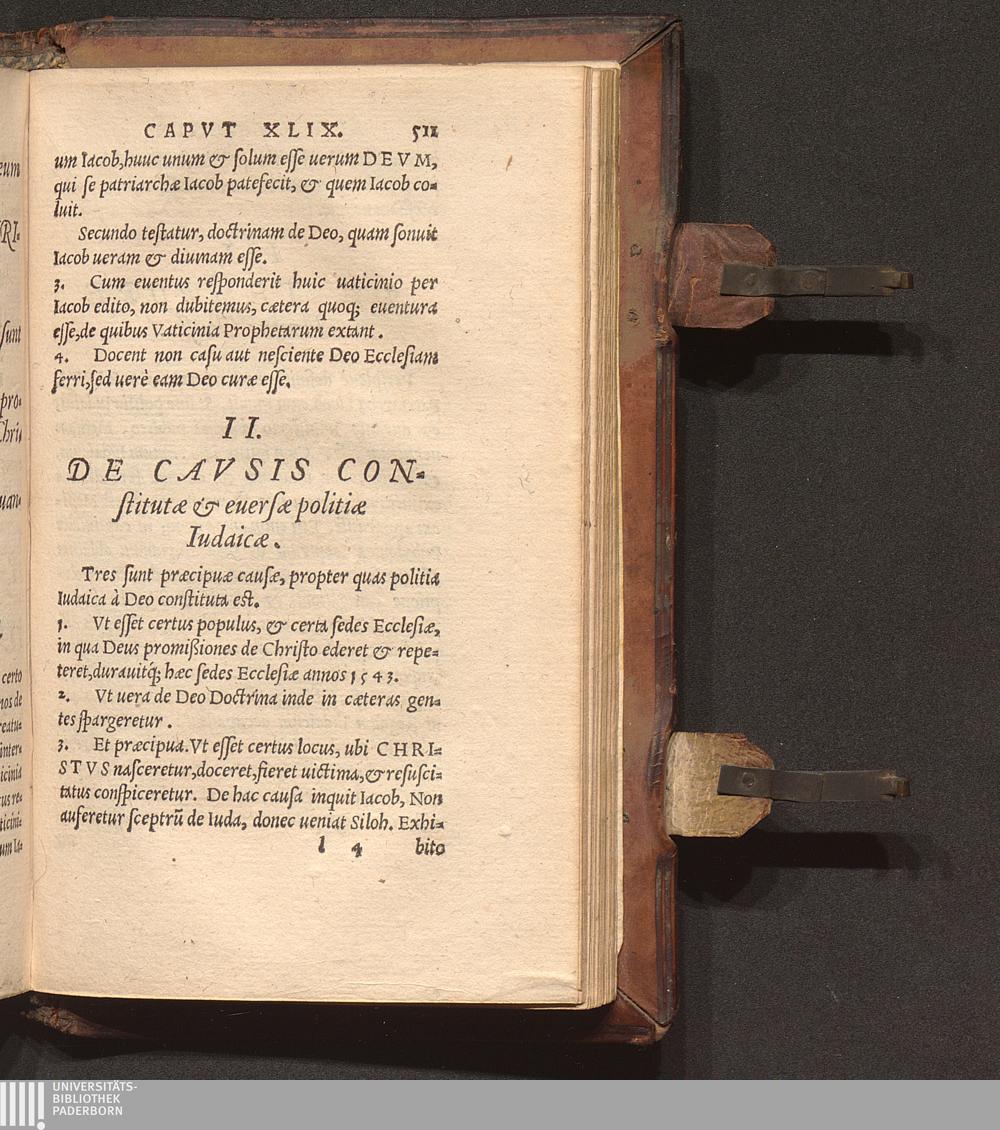 CAPVT XLIX. 511
um Iacob, huuc unum & solum esse uerum DEVM,
qui se patriarchæ Iacob patefecit, & quem Iacob co=
luit.
Secundo testatur, doctrinam de Deo, quam sonuit
Iacob ueram & diuinam esse.
3. Cum euentus responderit huic uaticinio per
Iacob edito, non dubitemus, cætera quoq; euentura
esse, de quibus Vaticinia Prophetarum extant.
4. Docent non casu aut nesciente Deo Ecclesiam
ferri, sed uerè eam Deo curæ esse.
II.
DE CAVSIS CON=
stitutæ & euersæ politiæ
Iudaicæ.
Tres sunt præcipuæ causæ, propter quas politia
Iudaica à Deo constituta est.
1. Vt esset certus populus, & certa sedes Ecclesiæ,
in qua Deus promißiones de Christo ederet & repe=
teret, durauitq́; hæc sedes Ecclesiæ annos 1543.
2. Vt uera de Deo Doctrina inde in cæteras gen=
tes spargeretur.
3. Et præcipua. Vt esset certus locus, ubi CHRI=
STVS nasceretur, doceret, fieret uictima, & resusci=
tatus conspiceretur. De hac causa inquit Iacob, Non
auferetur sceptrũ de Iuda, donec ueniat Siloh. Exhi=
l 4 bito
eum
RI=
sunt
pro=
Chri
quam=
certo
nos de
reatu=
inter=
icinia
tus re=
ticini=
um Ia=
UNIVERSITÄTS-
BIBLIOTHEK
PADERBORN